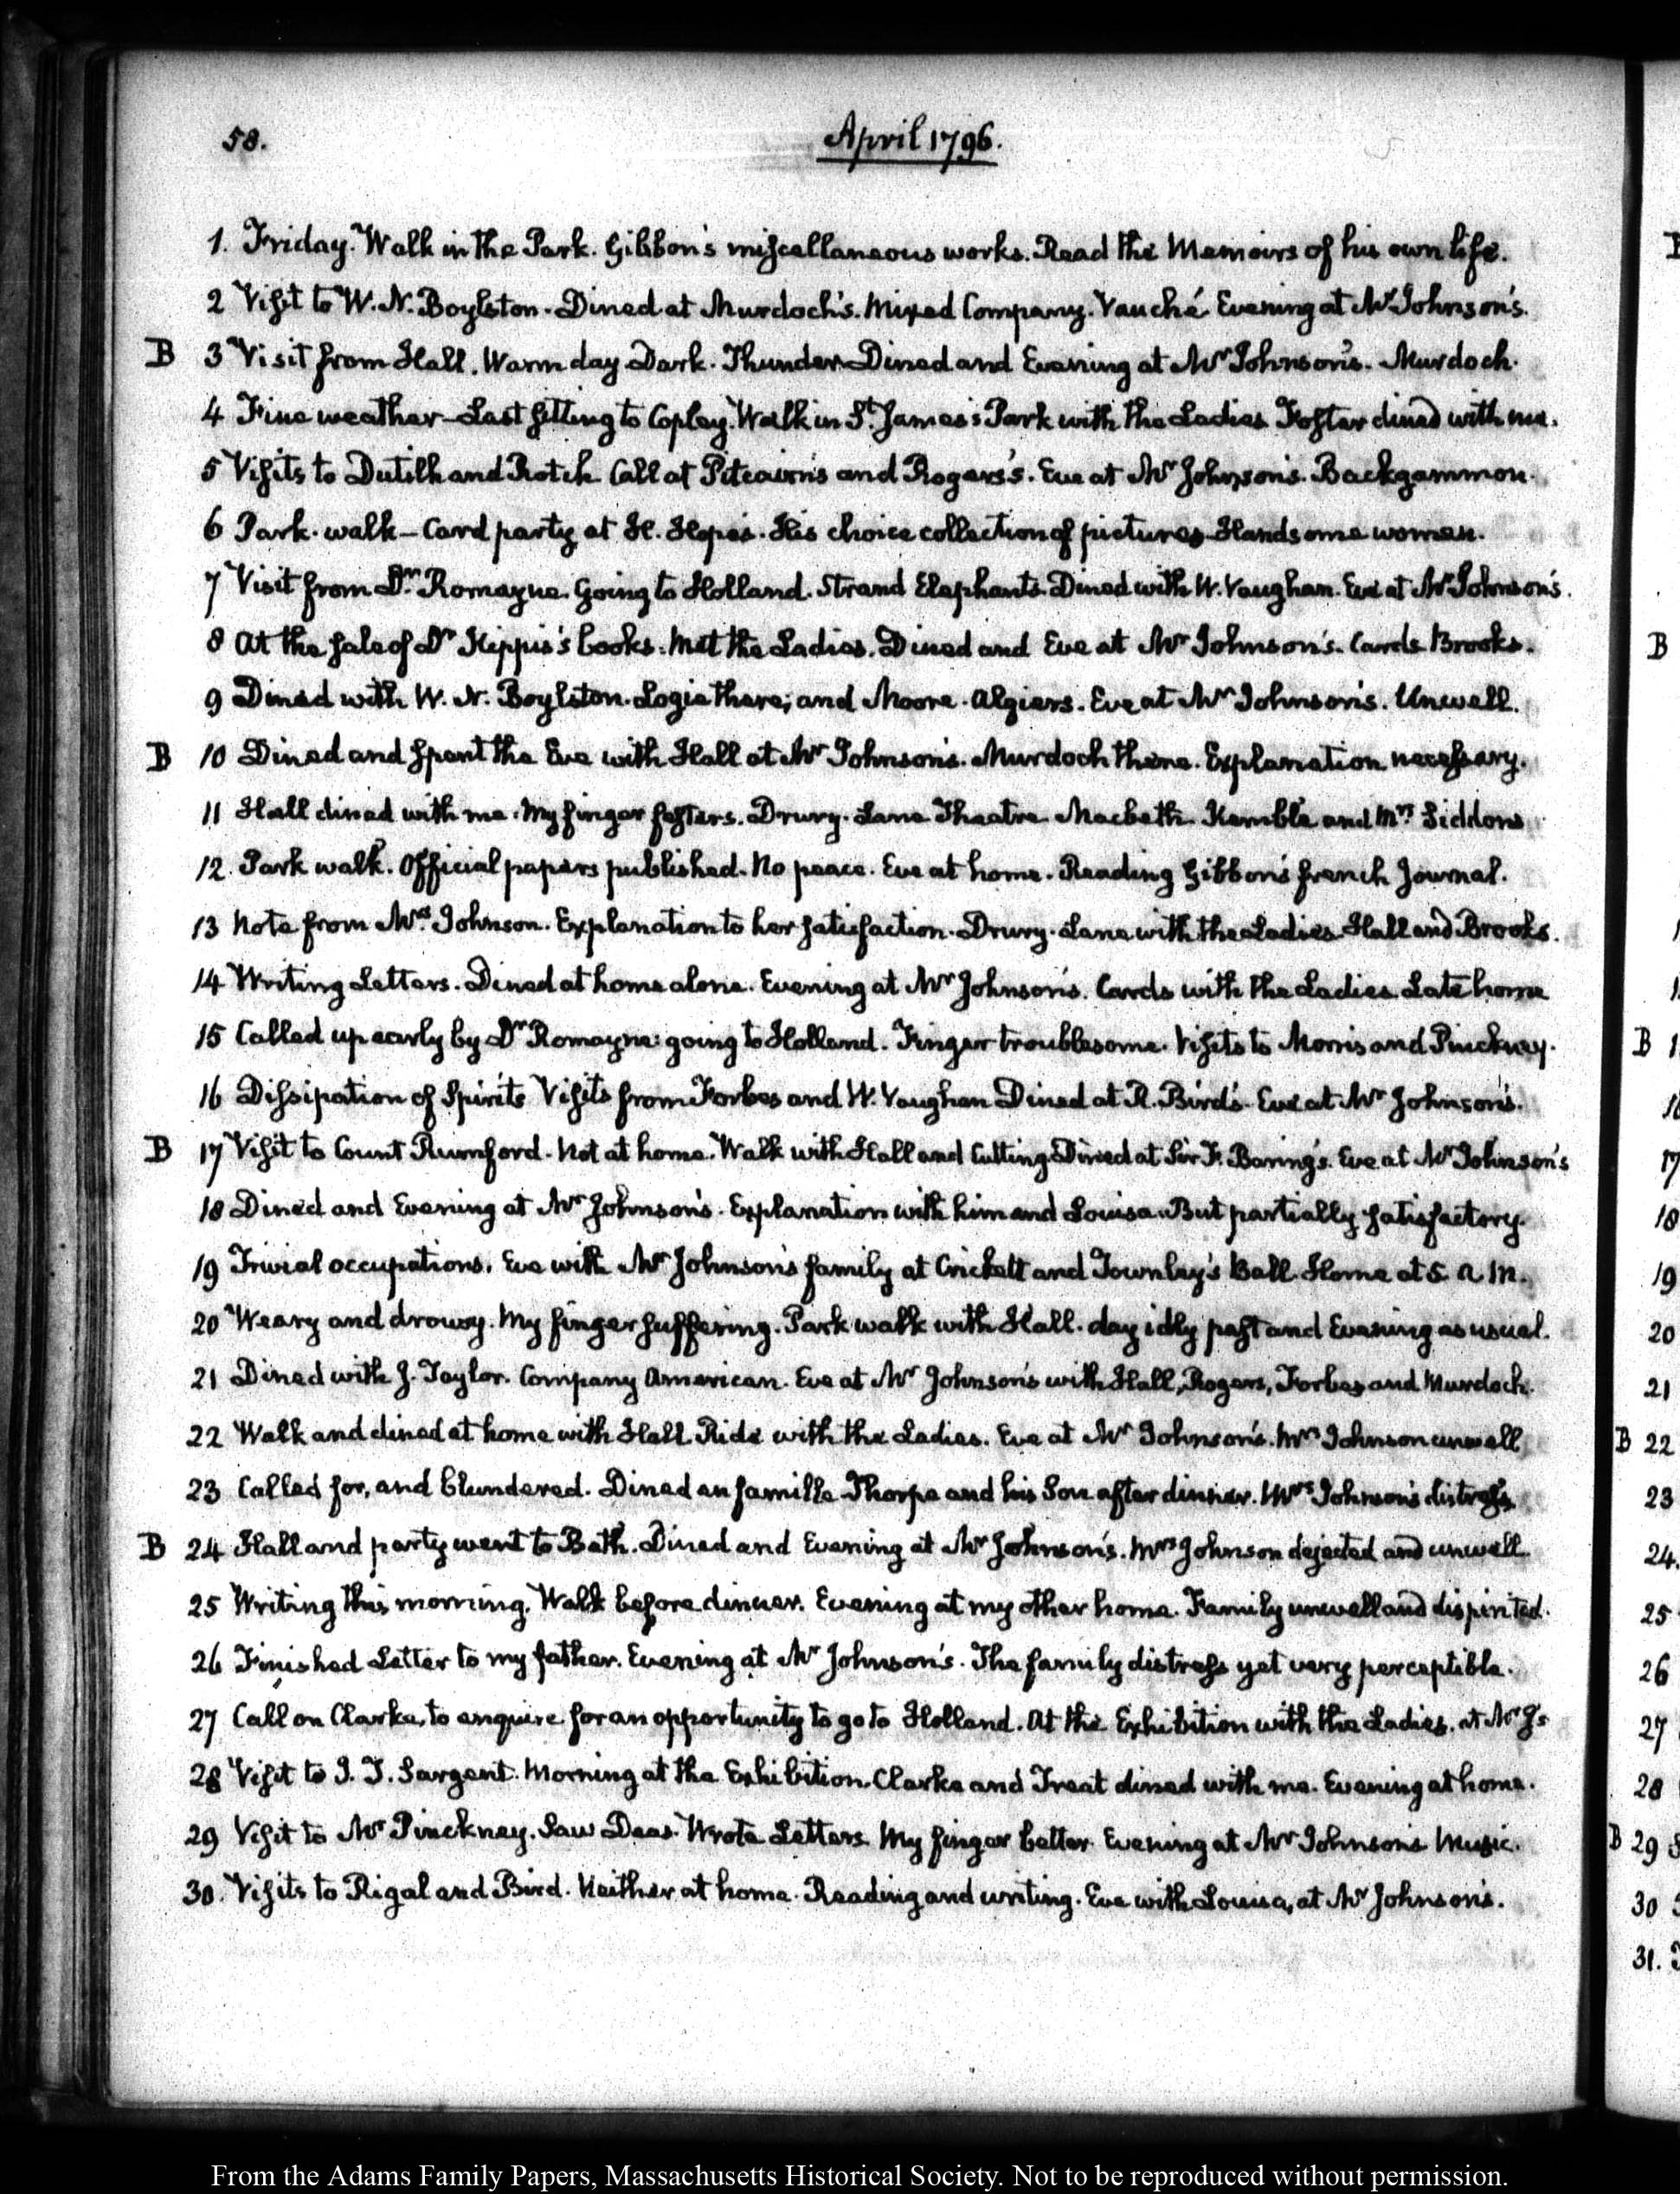 58.
April 1796.
1. Friday. Walk in the Park. Gibbon's miscellaneous works. Read the Memoirs of his own life.
2 Visit to W. N. Boylston. Dined at Murdoch's. Mixed Company. Vauché. Evening at Mr Johnson's.
B 3 Visit from Hall. Warm day Dark. Thunder Dined and Evening at Mr Johnson's. Murdoch.
4 Fine weather—Last sitting to Copley. Walk in St. James's Park with the Ladies Foster dined with me.
5 Visits to Dutilh and Rotch Call at Pitcairn's and Rogers's. Eve at Mr Johnson's. Backgammon.
6 Park. walk—Card party at H. Hope's. His choice collection of pictures Handsome women.
7 Visit from Dr. Romayne. Going to Holland. Strand Elephants. Dined with W. Vaughan. Eve at Mr Johnson's.
8 At the sale of Dr Kippis's books. Met the Ladies. Dined and Eve at Mr Johnson's. Cards Brooks.
9 Dined with W. N. Boylston. Logie there; and Moore. Algiers. Eve at Mr Johnson's. Unwell.
B 10 Dined and spent the Eve with Hall at Mr Johnson's. Murdoch there. Explanation necessary.
11 Hall dined with me. My finger festers. Drury. Lane Theatre Macbeth. Kemble and Mrs Siddons
12. Park walk. Official papers published. No peace. Eve at home. Reading Gibbon's french Journal.
13 Note from Mrs. Johnson. Explanation to her satisfaction. Drury. Lane with the Ladies Hall and Brooks.
14 Writing Letters. Dined at home alone. Evening at Mr Johnson's. Cards with the Ladies Late home
15 Called up early by Dr Romayne: going to Holland. Finger troublesome. Visits to Morris and Pinckney.
16 Dissipation of Spirits Visits from Forbes and W. Vaughan Dined at R. Bird's. Eve at Mr Johnson's.
B 17 Visit to Count Rumford. Not at home. Walk with Hall and Cutting. Dined at Sir F. Baring's. Eve at Mr Johnson's
18 Dined and Evening at Mr Johnson's. Explanation with him and Louisa. But partially satisfactory.
19 Trivial occupations. Eve with Mr Johnson's family at Crickett and Townley's Ball. Home at 5 A M.
20 Weary and drowsy. My finger suffering. Park walk with Hall. day idly past and Evening as usual.
21 Dined with J. Taylor. Company American. Eve at Mr Johnson's with Hall, Rogers, Forbes and Murdoch.
22 Walk and dined at home with Hall Ride with the Ladies. Eve at Mr Johnson's. Mrs Johnson unwell
23 Called for, and blundered. Dined en famille Thorpe and his Son after dinner. Mrs Johnson's distress.
B 24 Hall and party went to Bath. Dined and Evening at Mr Johnson's. Mrs Johnson dejected and unwell.
25 Writing this morning. Walk before dinner. Evening at my other home. Family unwell and dispirited.
26 Finished Letter to my father. Evening at Mr Johnson's. The family distress yet very perceptible.
27 Call on Clarke, to enquire for an opportunity to go to Holland. At the Exhibition with the Ladies. at Mr J's
28 Visit to I. T. Sargent. Morning at the Exhibition. Clarke and Treat dined with me. Evening at home.
29 Visit to Mr Pinckney. Saw Deas. Wrote Letters. My finger better. Evening at Mr Johnson's Music.
30. Visits to Rigal and Bird. Neither at home. Reading and writing. Eve with Louisa, at Mr Johnson's.
From the Adams Family Papers, Massachusetts Historical Society. Not to be reproduced without permission.